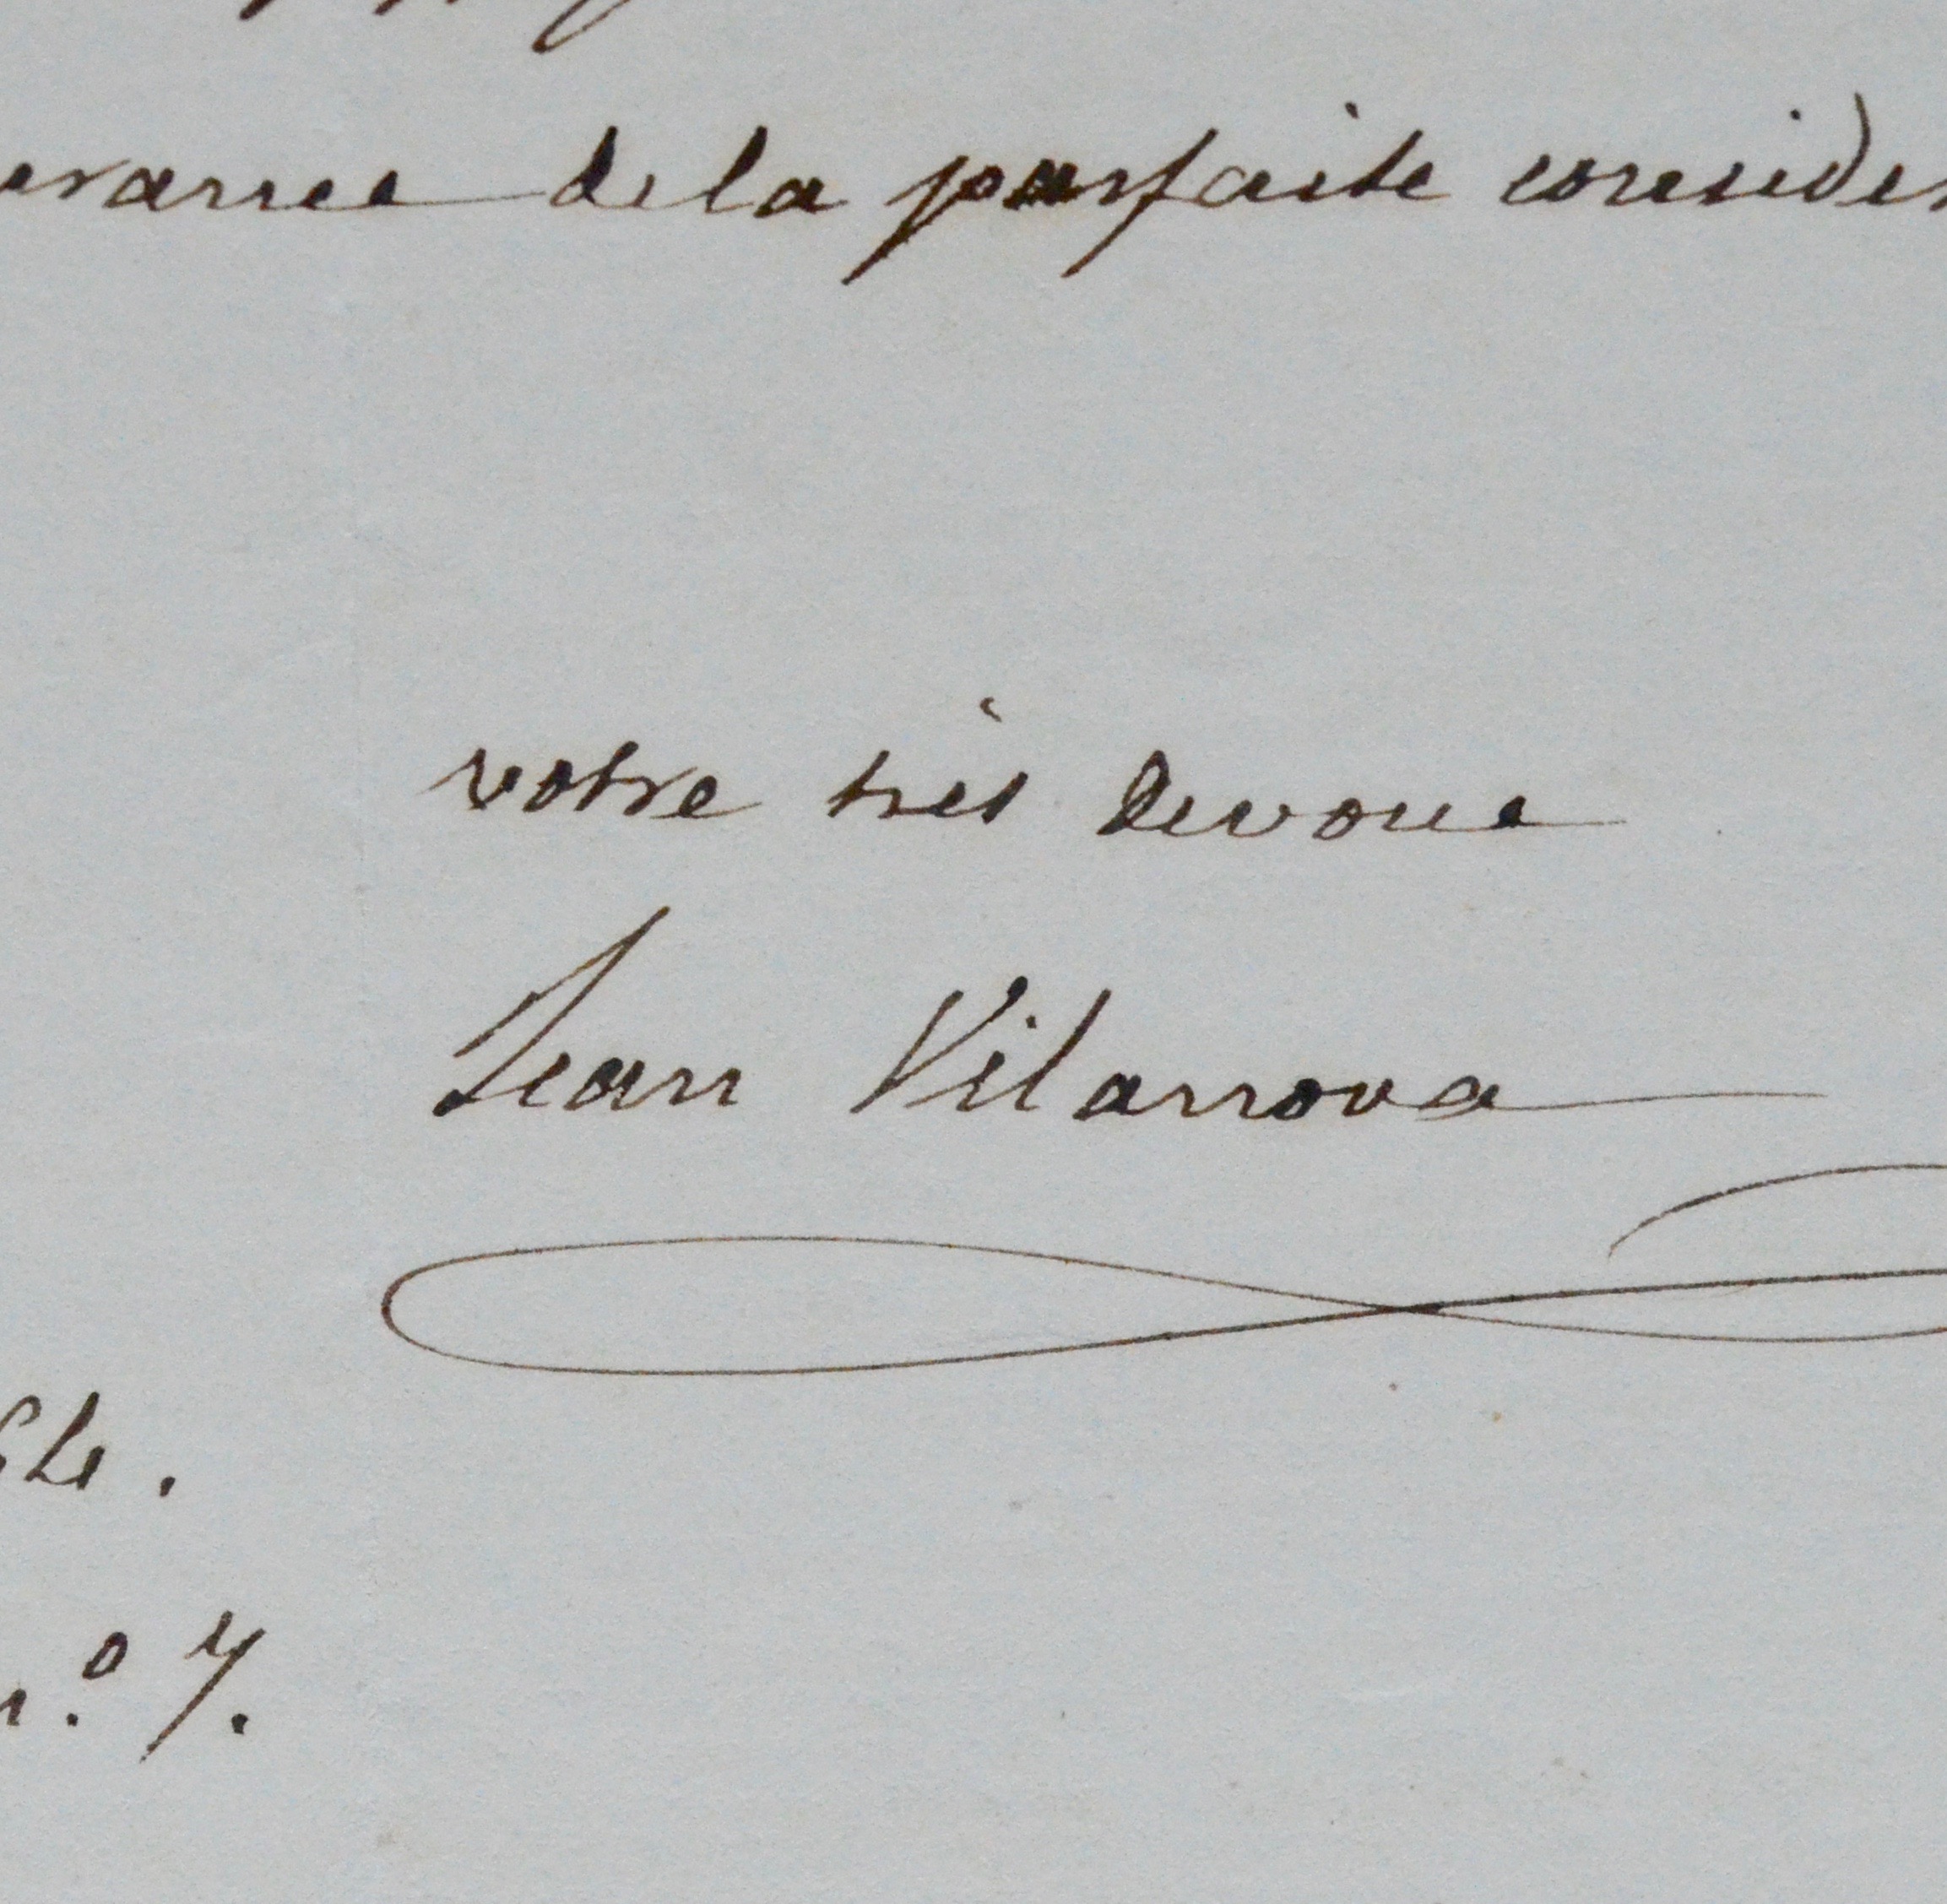 de la parfaite consider
votre très devoue
Jean Vilanova
n.º 7.